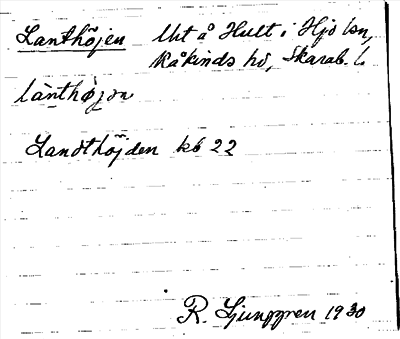 Lanthöjen Uht å Hult i Hjo lsn,
Kåkinds hd, Skarab. l.
lànthøjɔn
Landthöjden kb 22
R. Ljunggren 1930